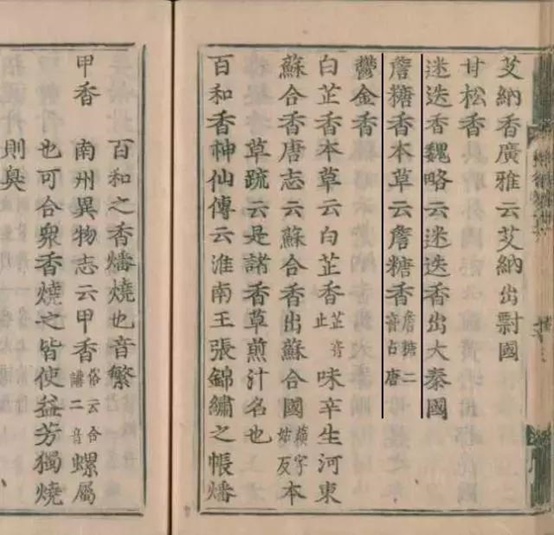 艾納香廣雅云艾納出剽國
甘松香
迷迭香魏略云迷迭香出大秦國
詹糖香本草云詹糖香詹糖二音占唐
鬱金香
白芷香本草云白芷香芷音止味辛生河東
蘇合香唐志云蘇合香出蘇合國蘇字姑反本
草疏云是諸香草煎汁名也
百和香神仙傳云淮南王張錦繡之帳燔
百和之香燔燒也音繁
甲香　南州異物志云甲香俗云合講二音螺属
也可合衆香燒之皆使益芳獨燒
則臭